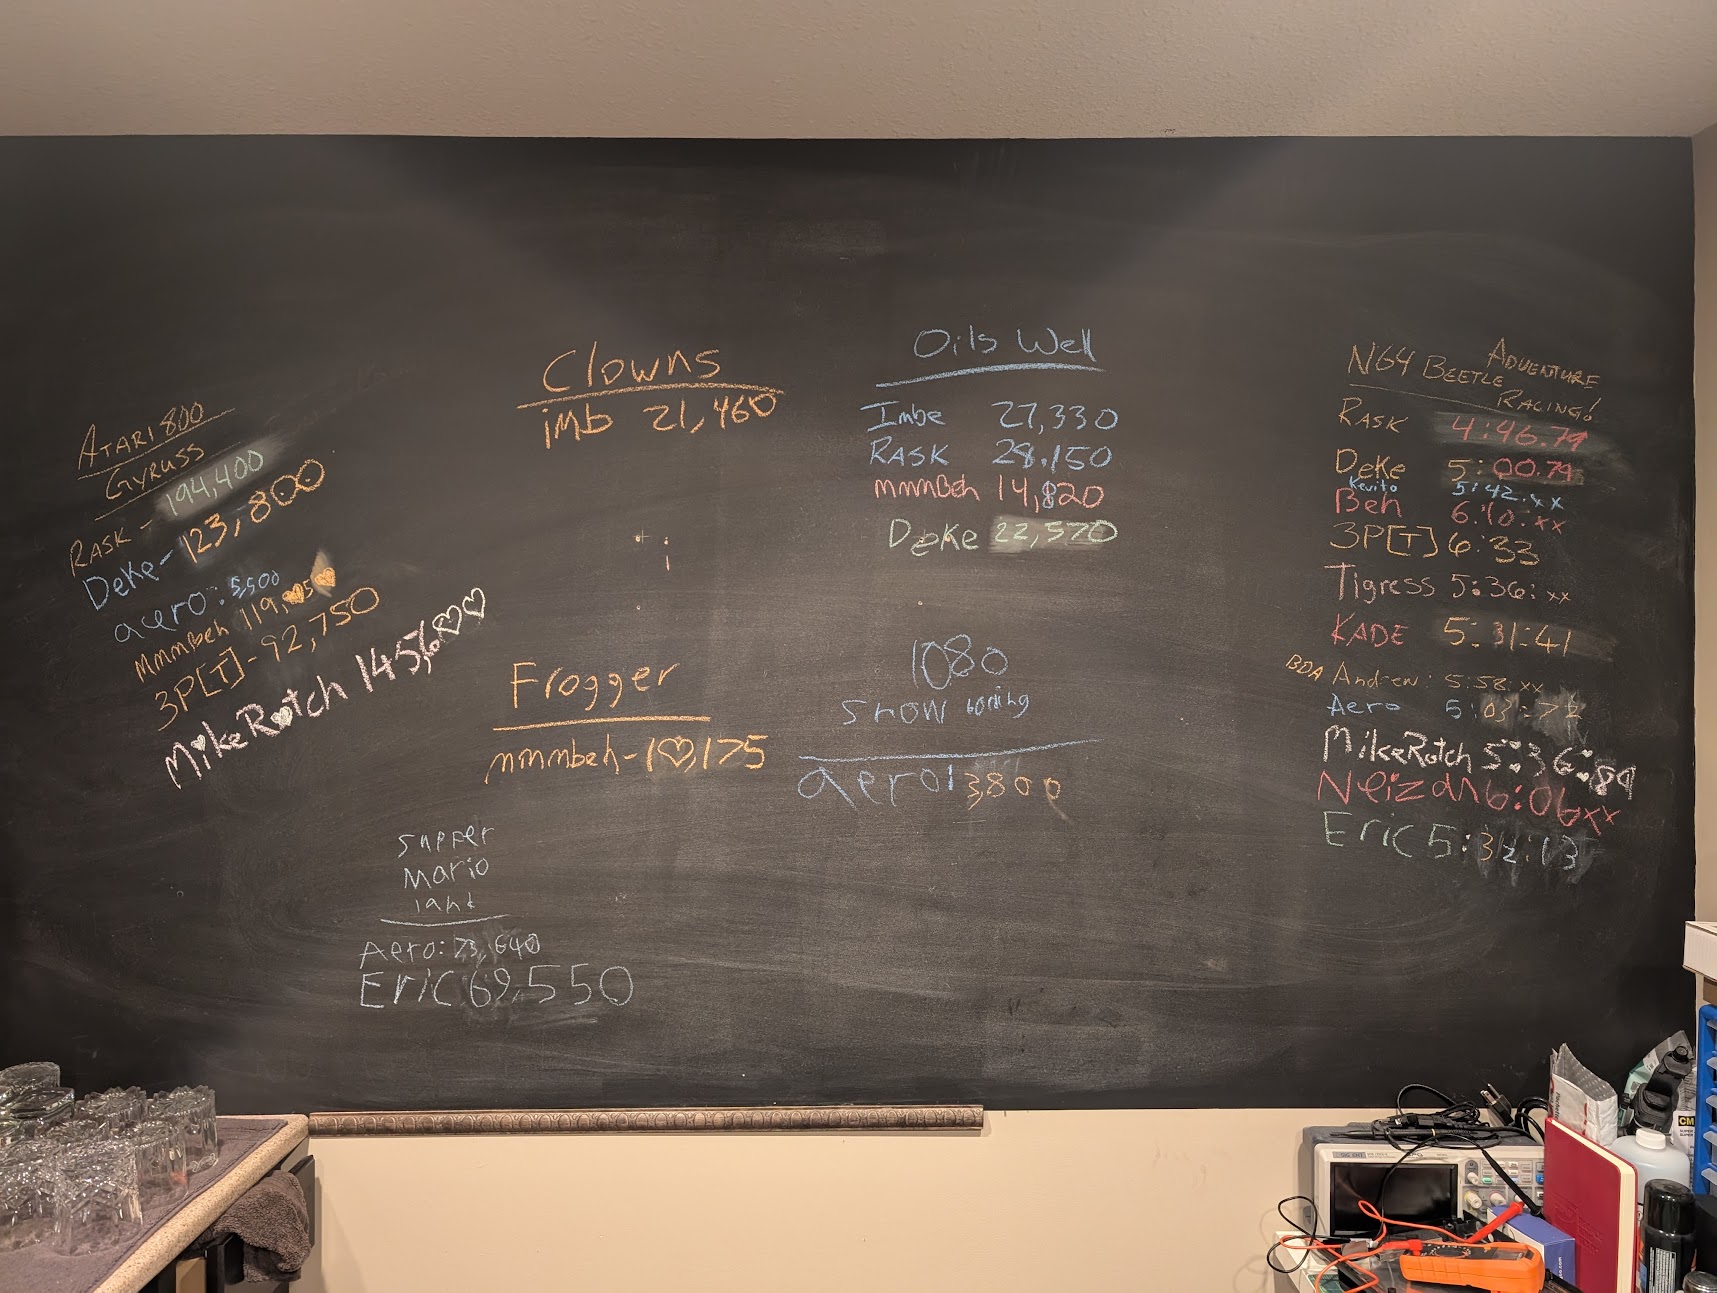 ATARI 800
GYRUSS
RASK - 194,400
DeKe - 123,800
aero: 5,500
mmmBeh 119,050
3P[T] - 92,750
MikeRotch 145,600
Clowns
imb 21,460
Frogger
mmmbeh - 10,175
supper
Mario
lant
Aero: 23,640
Eric 69,550
Oils Well
Imbe 27,330
RASK 28,150
mmmBeh 14,820
DeKe 22,570
1080
snow bording
aero 13,800
N64 BEETLE ADVENTURE
RACING!
RASK 4:46.79
DeKe 5:00.79
Kevito 5:42.xx
Beh 6:10:xx
3P[T] 6:33
Tigress 5:36:xx
KADE 5:31:41
BDA Andrew: 5:58:xx
Aero 5:03:72
MikeRotch 5:36:89
Neizan 6:06xx
Eric 5:32:13